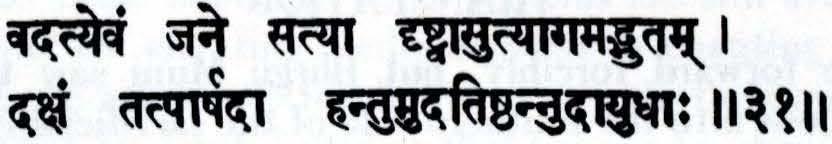 वदत्येवं जने सत्या दृष्ट्वासुत्यागमद्भुतम् ।
दक्षं तत्पार्षदा हन्तुमुदतिष्ठन्नुदायुधाः ॥३१॥